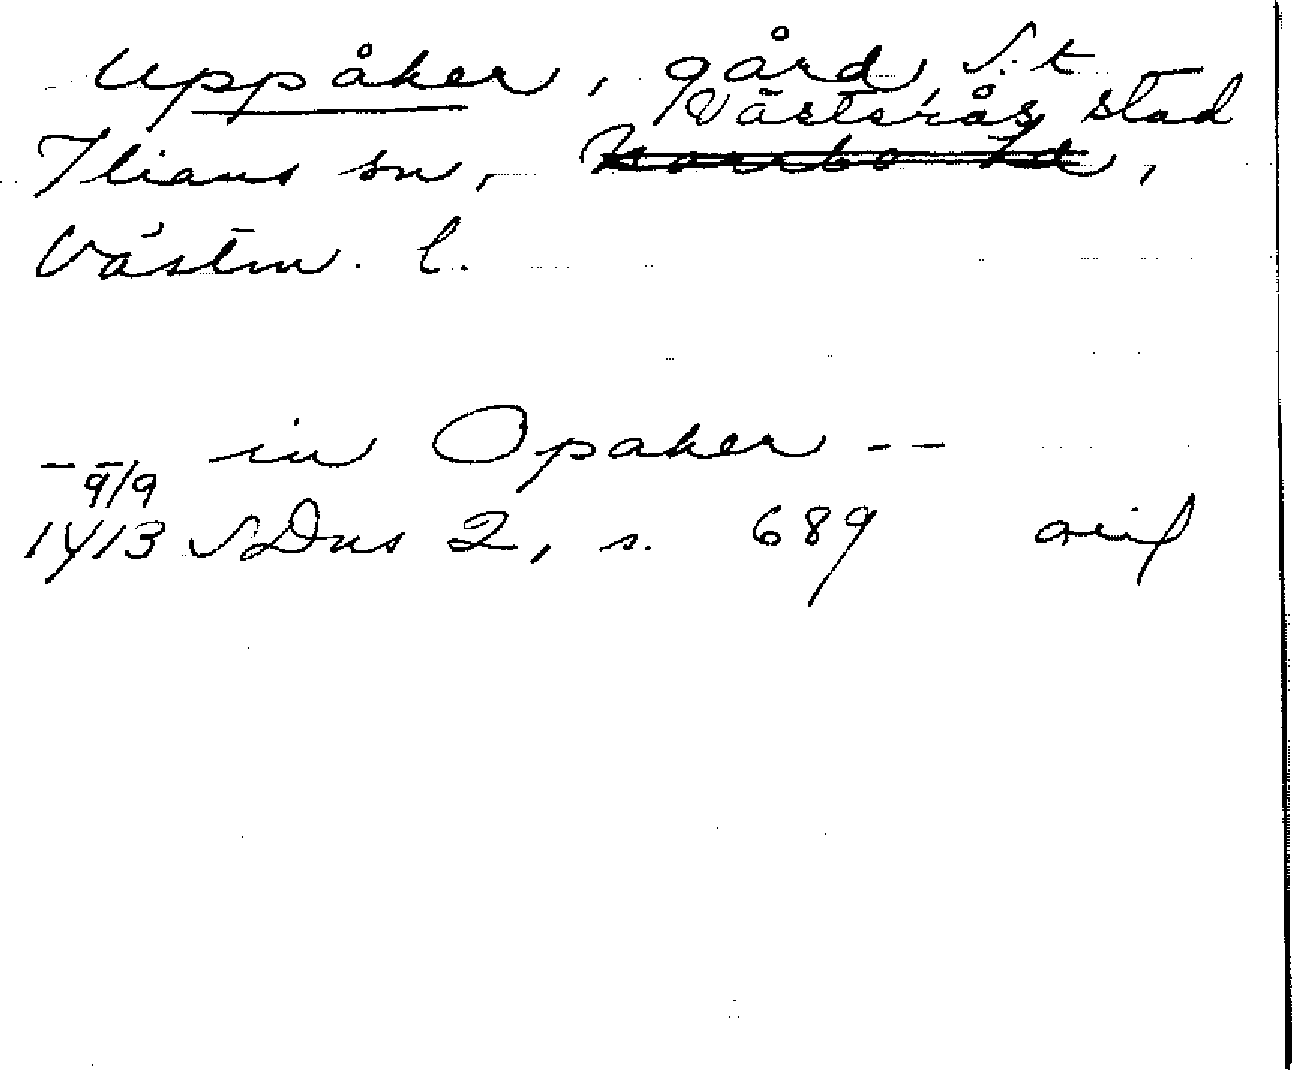 Uppåker, gård S:t
Västerås stad
Ilians sn, Norrbo hd,
Västm. l.
-- in Opaker --
9/9
1413 SDns 2, s. 689 orig